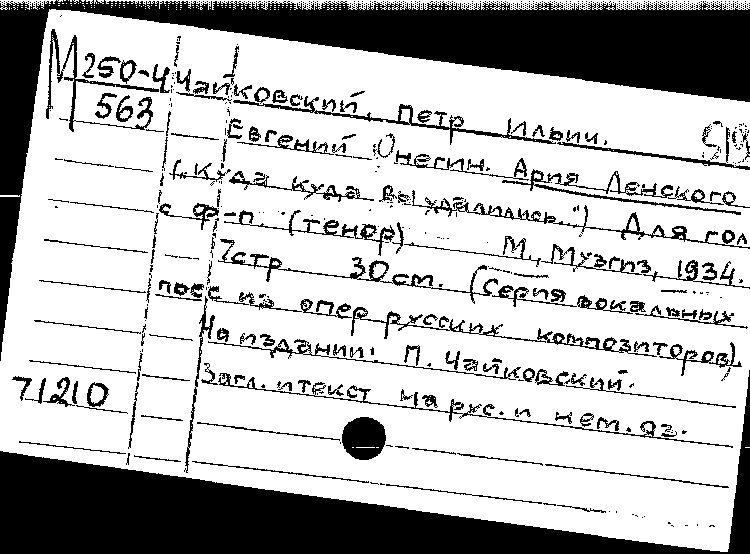 М 250-4 Чайковский, Петр Ильич.
563 519
Евгений Онегин. Ария Ленского
(„Куда куда вы удалились.") Для гол
с ф-п. (тенор). М., Музгиз, 1934.
7стр. 30см. (Серия вокальных
пьес из опер русских композиторов).
На издании: П. Чайковский.
Загл. и текст на рус. и нем. яз.
71210